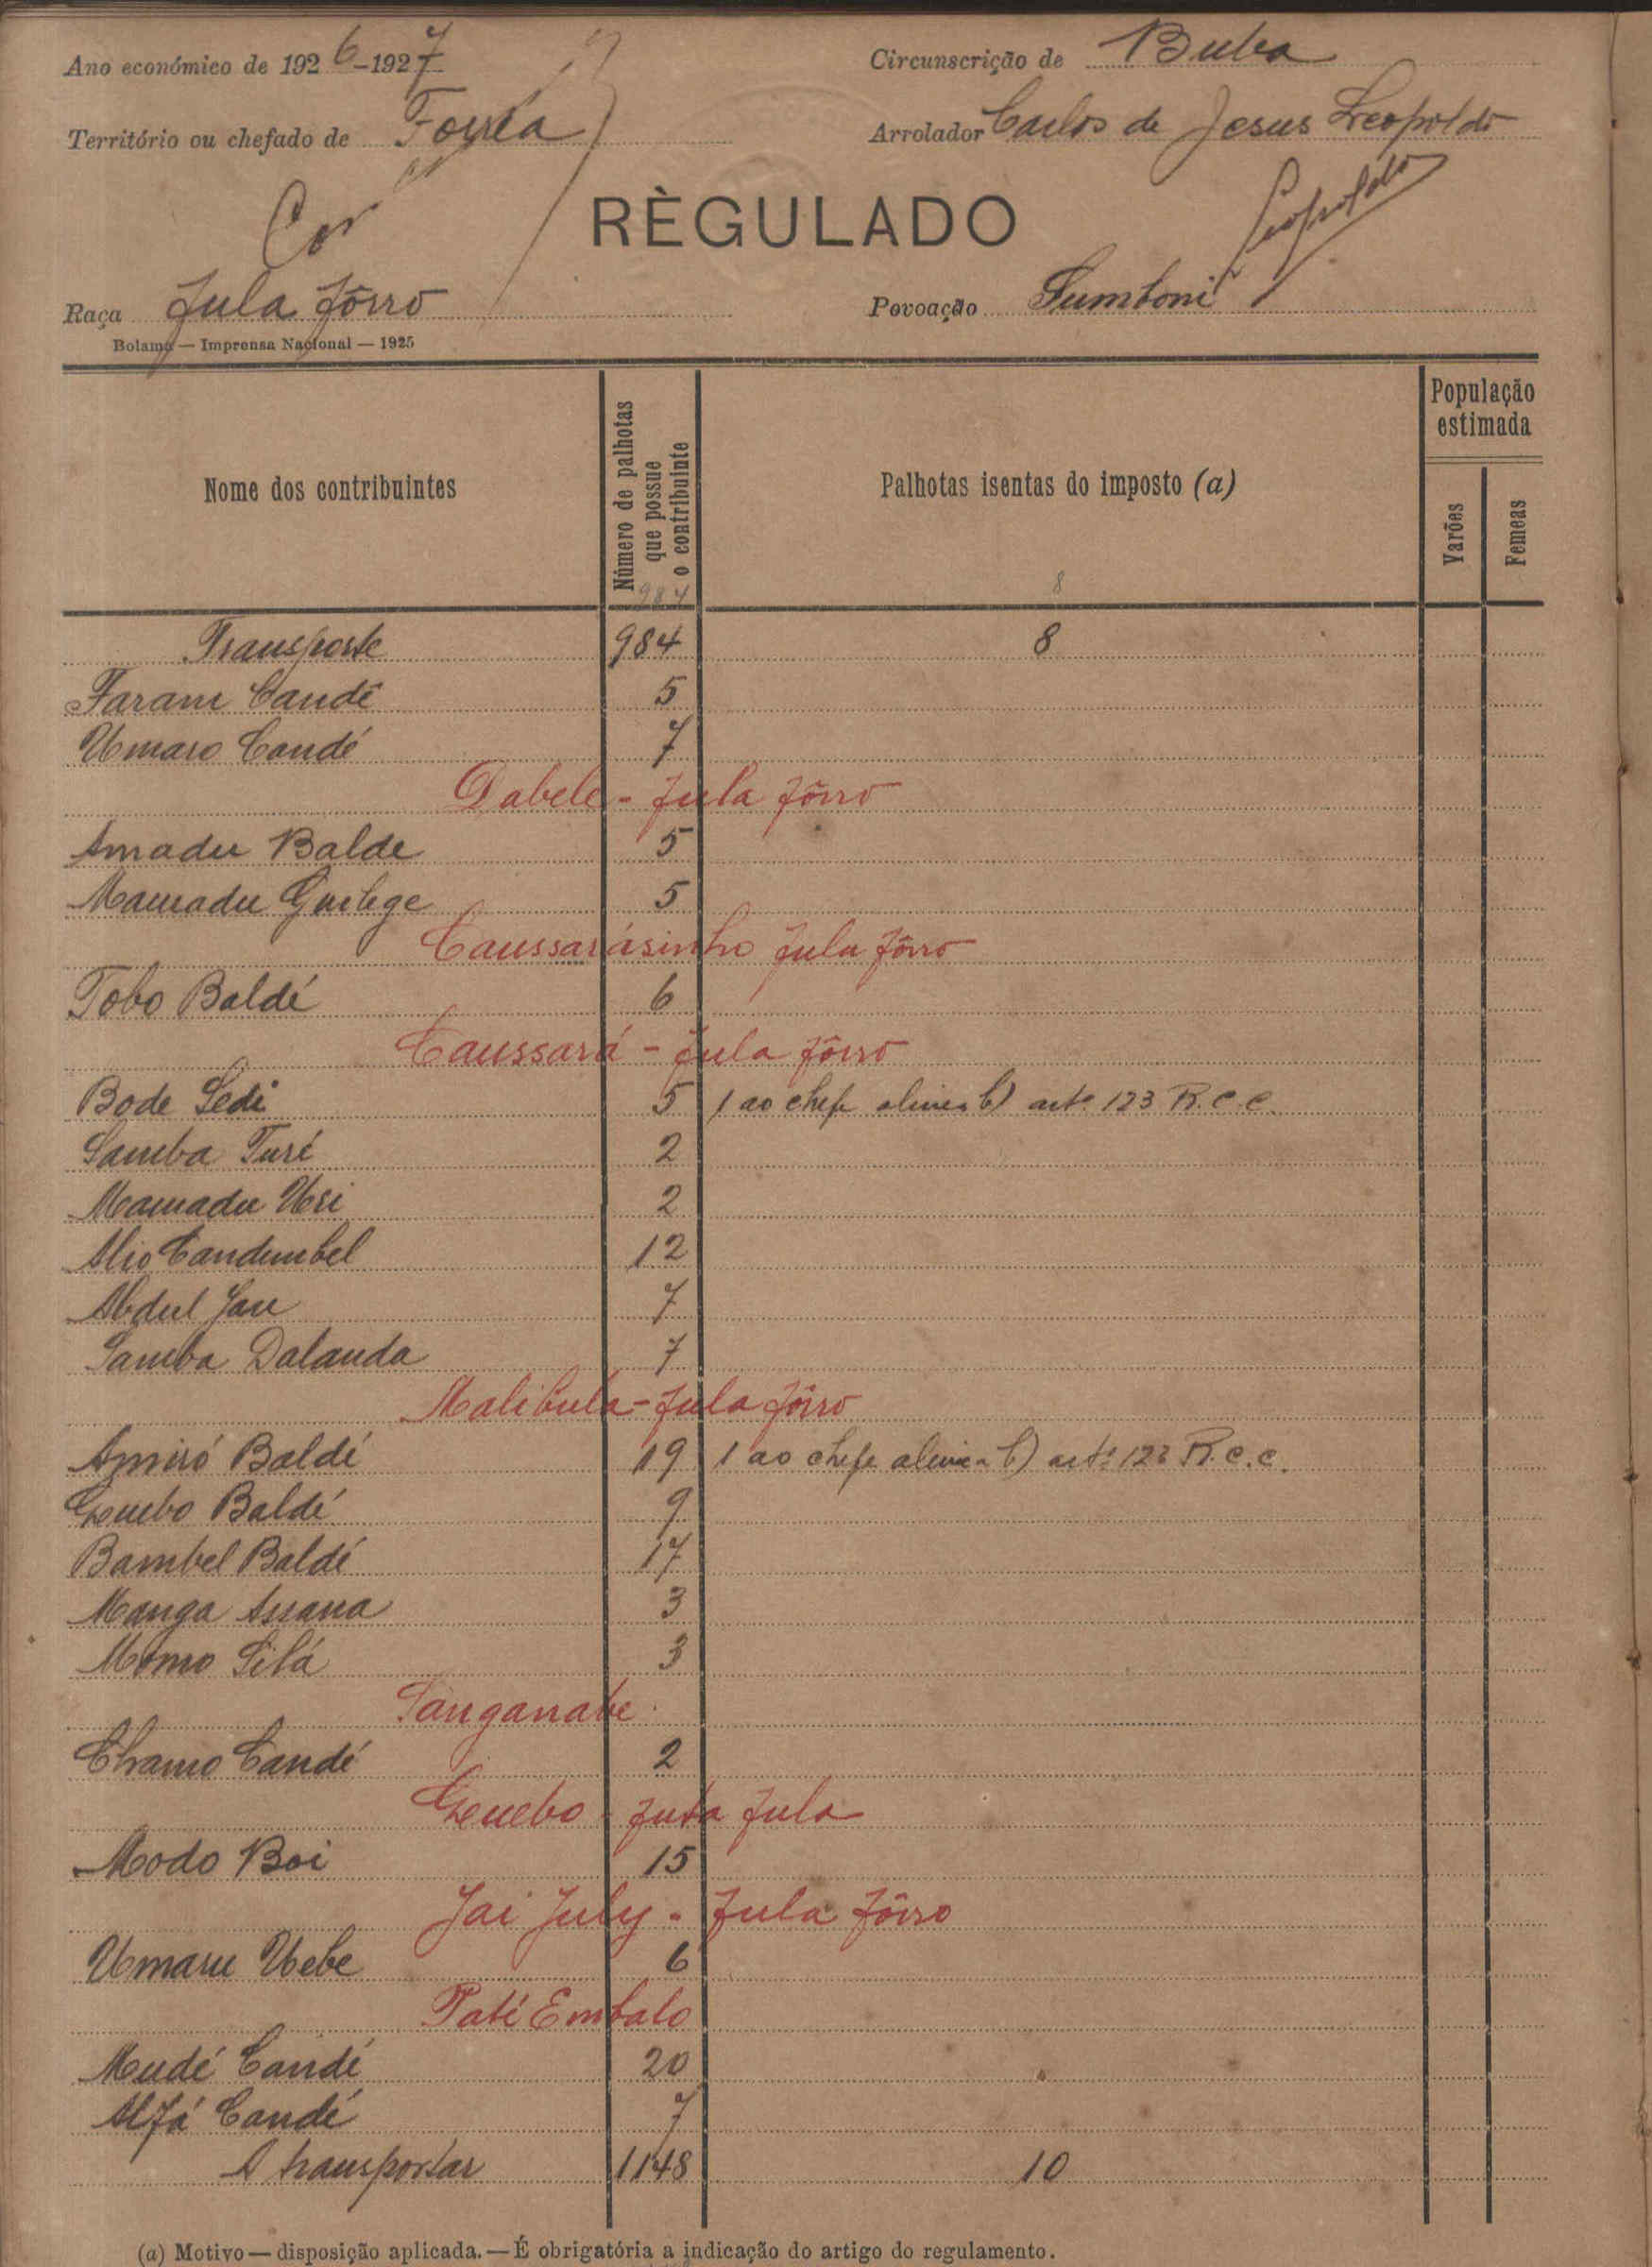 Ano económico de 1926-1927
Circunscrição de Buba
Território ou chefado de Forréa
Arrolador Carlos de Jesus Leopoldo
Cor
RÈGULADO
Leopoldo
Raça Fula fôrro
Povoação Sumboni
Bolama — Imprensa Nacional — 1925
Nome dos contribuintes
Número de palhotas que possue o contribuinte
Palhotas isentas do imposto (a)
População estimada
Varões
Femeas
984 8
Transporte 984 8
Faram Candé 5
Umaro Candé 7
Dabele - fula fôrro
Amadu Balde 5
Mamadu Guilege 5
Caussarásinho fula fôrro
Tobo Baldé 6
Caussará - fula fôrro
Bode Sedi 5 1 ao chefe alinea b) artº 123 R.C.C.
Samba Turé 2
Mamadu Uri 2
Alio Candembel 12
Abdul Jau 7
Samba Dalanda 7
Malibula - fula fôrro
Amiró Baldé 19 1 ao chefe alinea b) artº 123 R.C.C.
Guebo Baldé 9
Bambel Baldé 17
Manga Assana 3
Momo Silá 3
Sanganabe
Chamo Candé 2
Guebo - futa fula
Modo Boi 15
Jai July - fula fôrro
Umaru Uebe 6
Paté Embalo
Mudé Candé 20
Alfá Candé 7
A transportar 1148 10
(a) Motivo — disposição aplicada. — É obrigatória a indicação do artigo do regulamento.